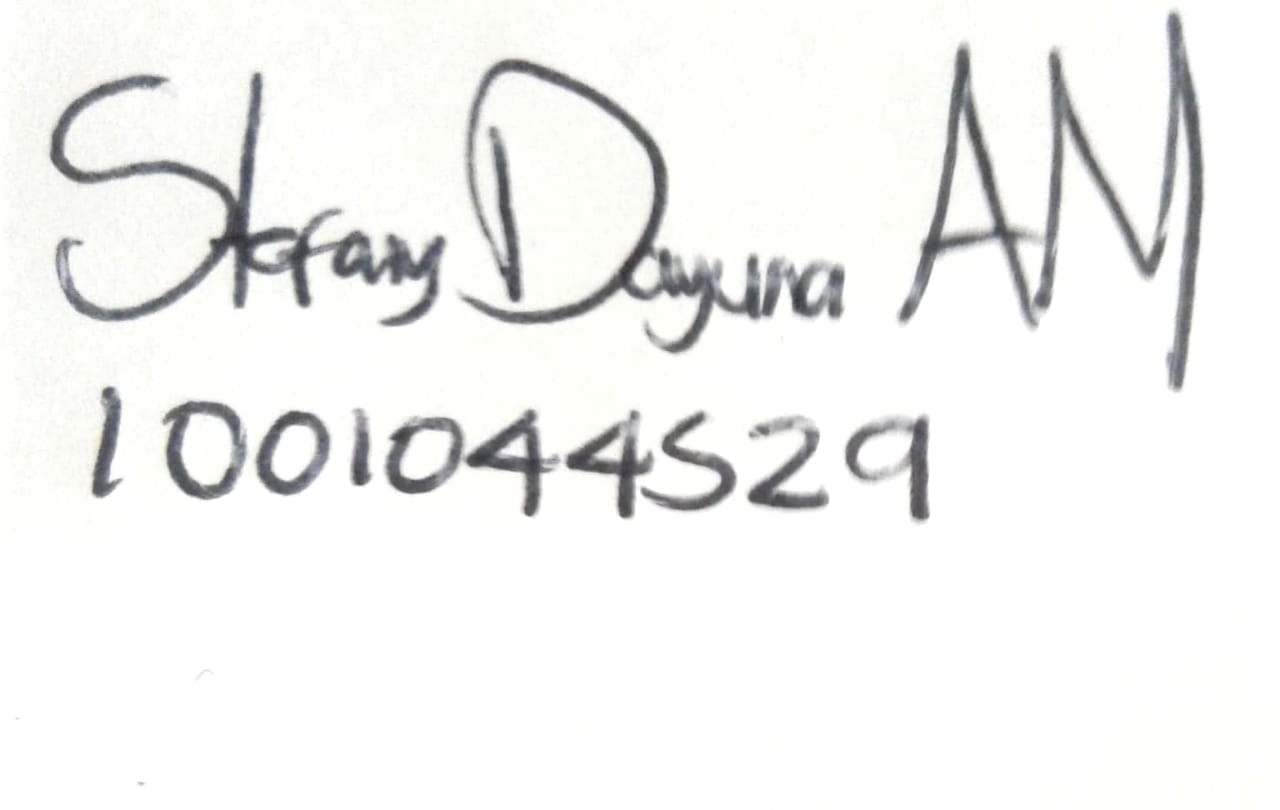 Stefany Dayuna AM
1001044529